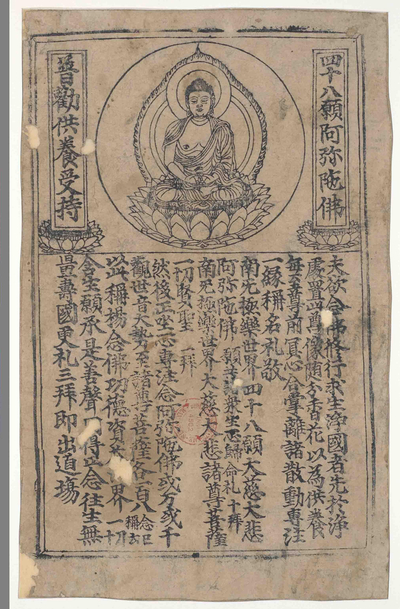 四十八願阿弥陁佛
普勸供養受持
夫欲念佛修行求生淨國者先於淨
處置此尊像隨分香花以為供養
每至尊前冥心合掌離諸散動專注
一緣稱名礼敬
南无極樂世界四十八願大慈大悲
阿弥陁佛 願共諸衆生志心歸命礼 十拜
南无極樂世界大慈大悲諸尊菩薩
一切賢聖 一拜
然後正坐一心專注念阿弥陁佛或万或千
觀世音大勢至諸尊菩薩各一百八 念已稱云
以此稱揚念佛功德資界一切
含生願承是善聲得正念往生無
量壽國更礼三拜即出道場